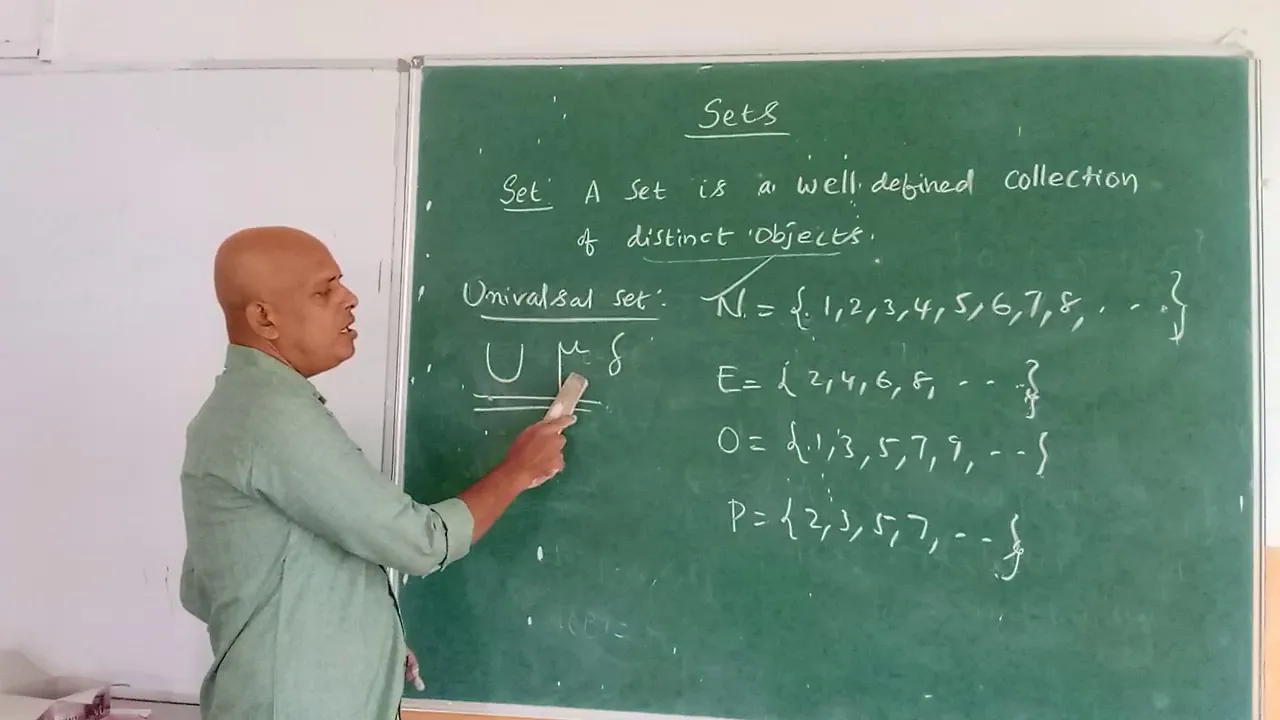 Sets
Set: A set is a well defined collection
of distinct objects.
Univalsal set:
U μ δ
N = {1, 2, 3, 4, 5, 6, 7, 8, . . .}
E = {2, 4, 6, 8, . . . }
O = {1, 3, 5, 7, 9, . . . }
P = {2, 3, 5, 7, . . . }